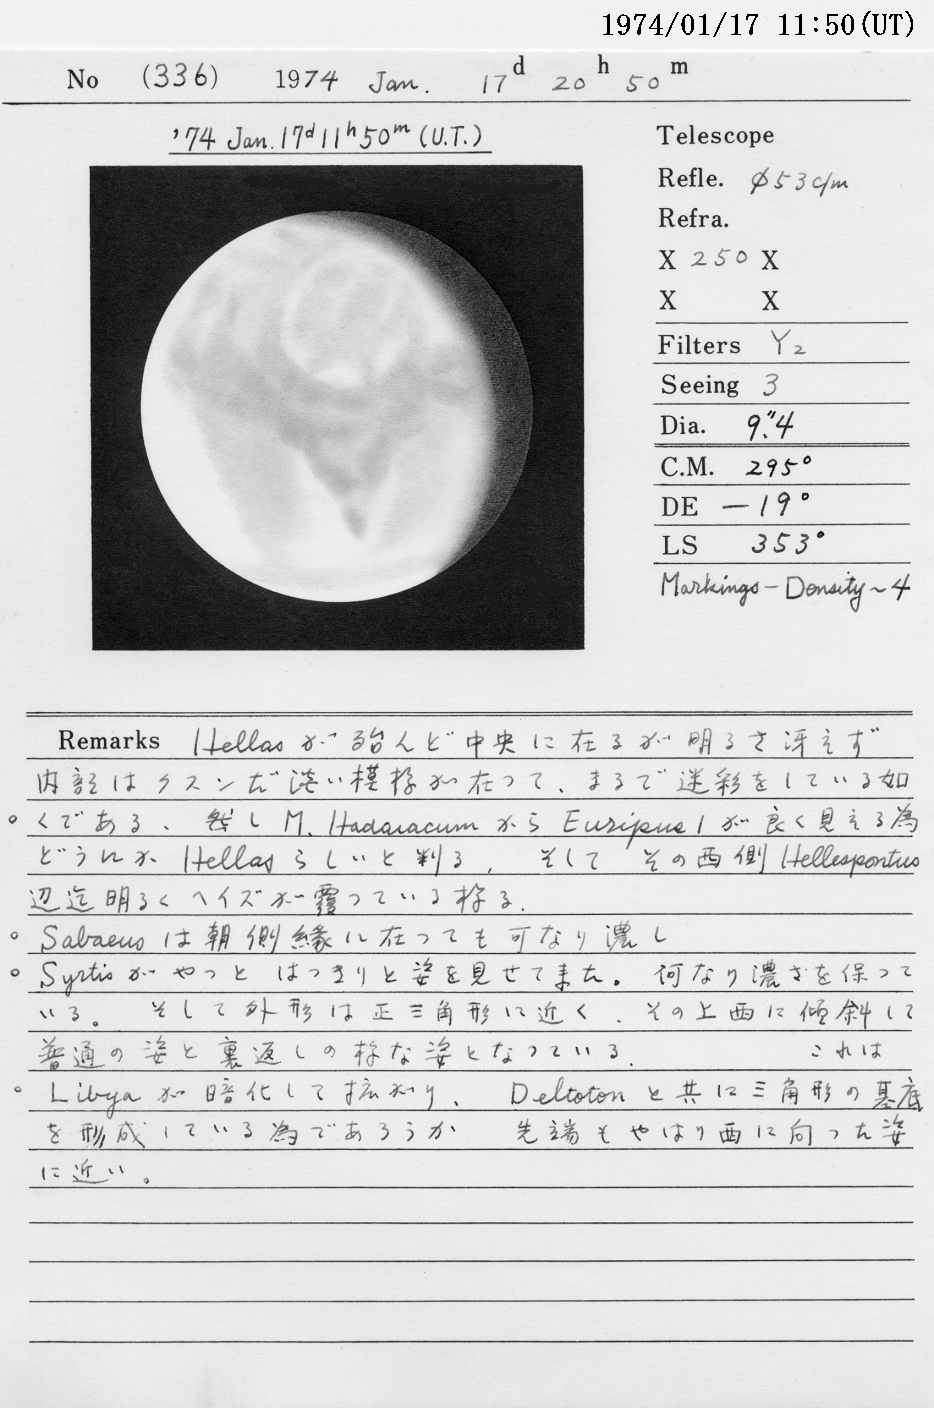 1974/01/17 11:50(UT)
No (336) 1974 Jan. 17d 20h 50m
'74 Jan. 17d 11h 50m (U.T.)
Telescope
Refle. φ53c/m
Refra.
X 250 X
X X
Filters Y2
Seeing 3
Dia. 9."4
C.M. 295°
DE −19°
LS 353°
Markings - Density ~ 4
Remarks Hellasが殆んど中央に在るが明るさ冴えず
内部はクスンだ淡い模様が在って、まるで迷彩をしている如
くである、然し M. Hadriacumから Euripus Iが良く見える為
どうにか Hellasらしいと判る、そして その西側 Hellespontus
辺迄明るくヘイズが覆っている様る.
Sabaeusは朝側縁に在っても可なり濃し
Syrtisがやっと はっきりと姿を見せてきた。 何なり濃さを保って
いる。 そして外形は正三角形に近く、その上西に傾斜して
普通の姿と裏返しの様な姿となっている. これは
Libyaが暗化して拡がり、 Deltotonと共に三角形の基底
を形成している為であろうか 先端もやはり西に向った姿
に近い。